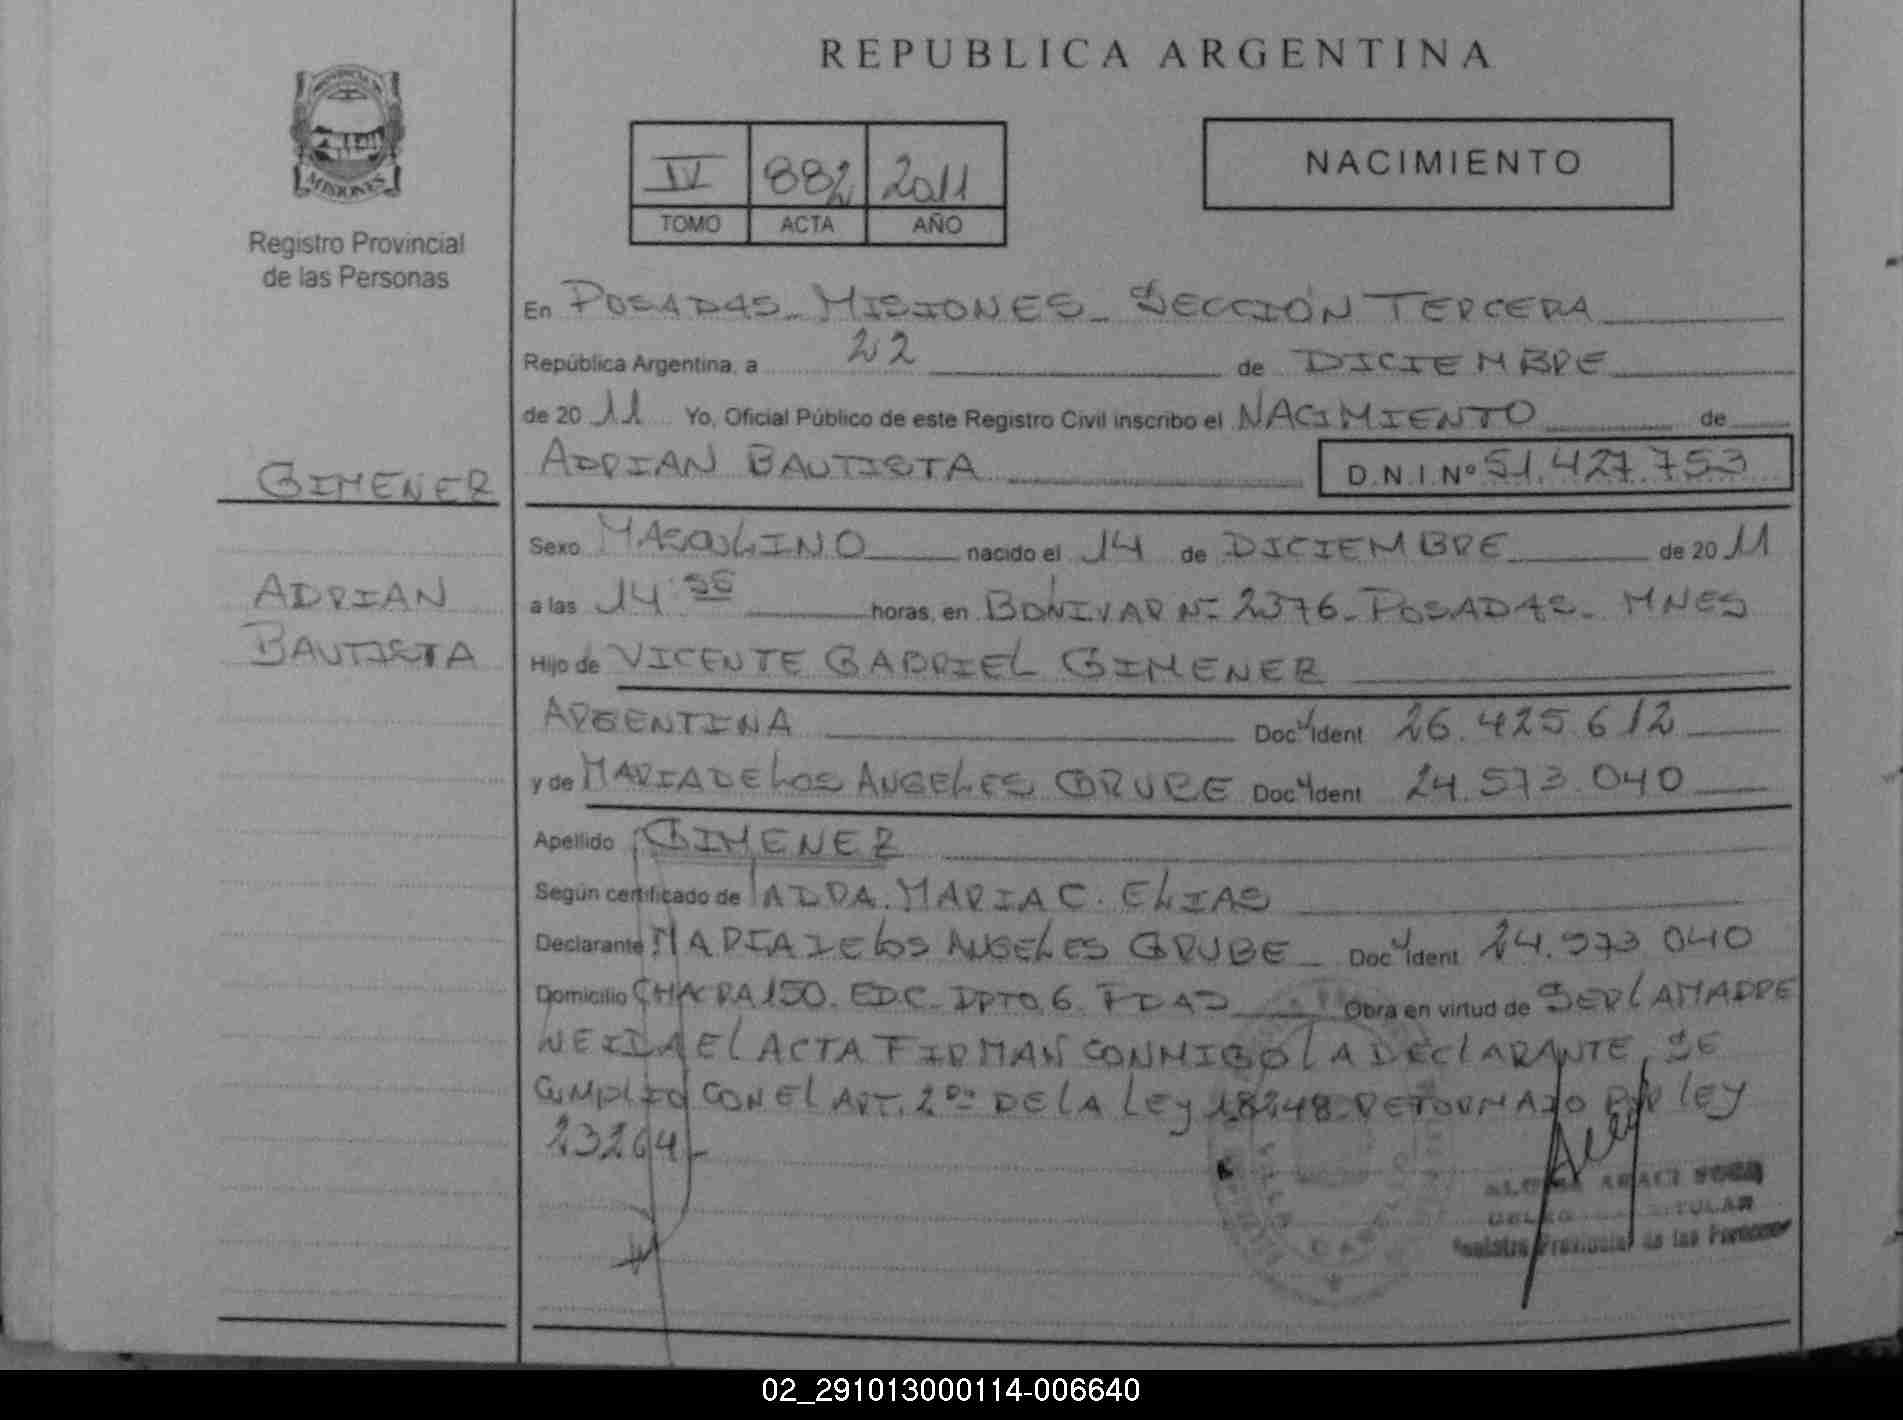 REPUBLICA ARGENTINA
PROVINCIA
MISIONES
Registro Provincial
de las Personas
IV 882 2011
TOMO ACTA AÑO
NACIMIENTO
En POSADAS - MISIONES - SECCIÓN TERCERA
República Argentina, a 22 de DICIEMBRE
de 20 11 Yo, Oficial Público de este Registro Civil inscribo el NACIMIENTO de
GIMENEZ
ADRIAN BAUTISTA D.N.I.Nº 51.427.753
Sexo MASCULINO nacido el 14 de DICIEMBRE de 20 11
ADRIAN
BAUTISTA
a las 14 horas, en BONIVAR Nº 2376 - POSADAS - MNES
Hijo de VICENTE GABRIEL GIMENEZ
ARGENTINA Doc Ident 26.425.612
y de MARIA DE LOS ANGELES GRUBE Doc Ident 24.573.040
Apellido GIMENEZ
Según certificado de LA DRA. MARIA C. ELIAS
Declarante MARIA DE LOS ANGELES GRUBE - Doc Ident 24.573.040
Domicilio CHACRA 150. ED.C. DPTO 6. PDAS Obra en virtud de SER LA MADRE
LEIDA EL ACTA FIRMAN CONMIGO LA DECLARANTE, SE
CUMPLIO CON EL ART. 2do DE LA LEY 18248 REFORMADO POR LEY
23264 -
ARACI
TITULAR
Registro Provincial de las Personas
02_291013000114-006640